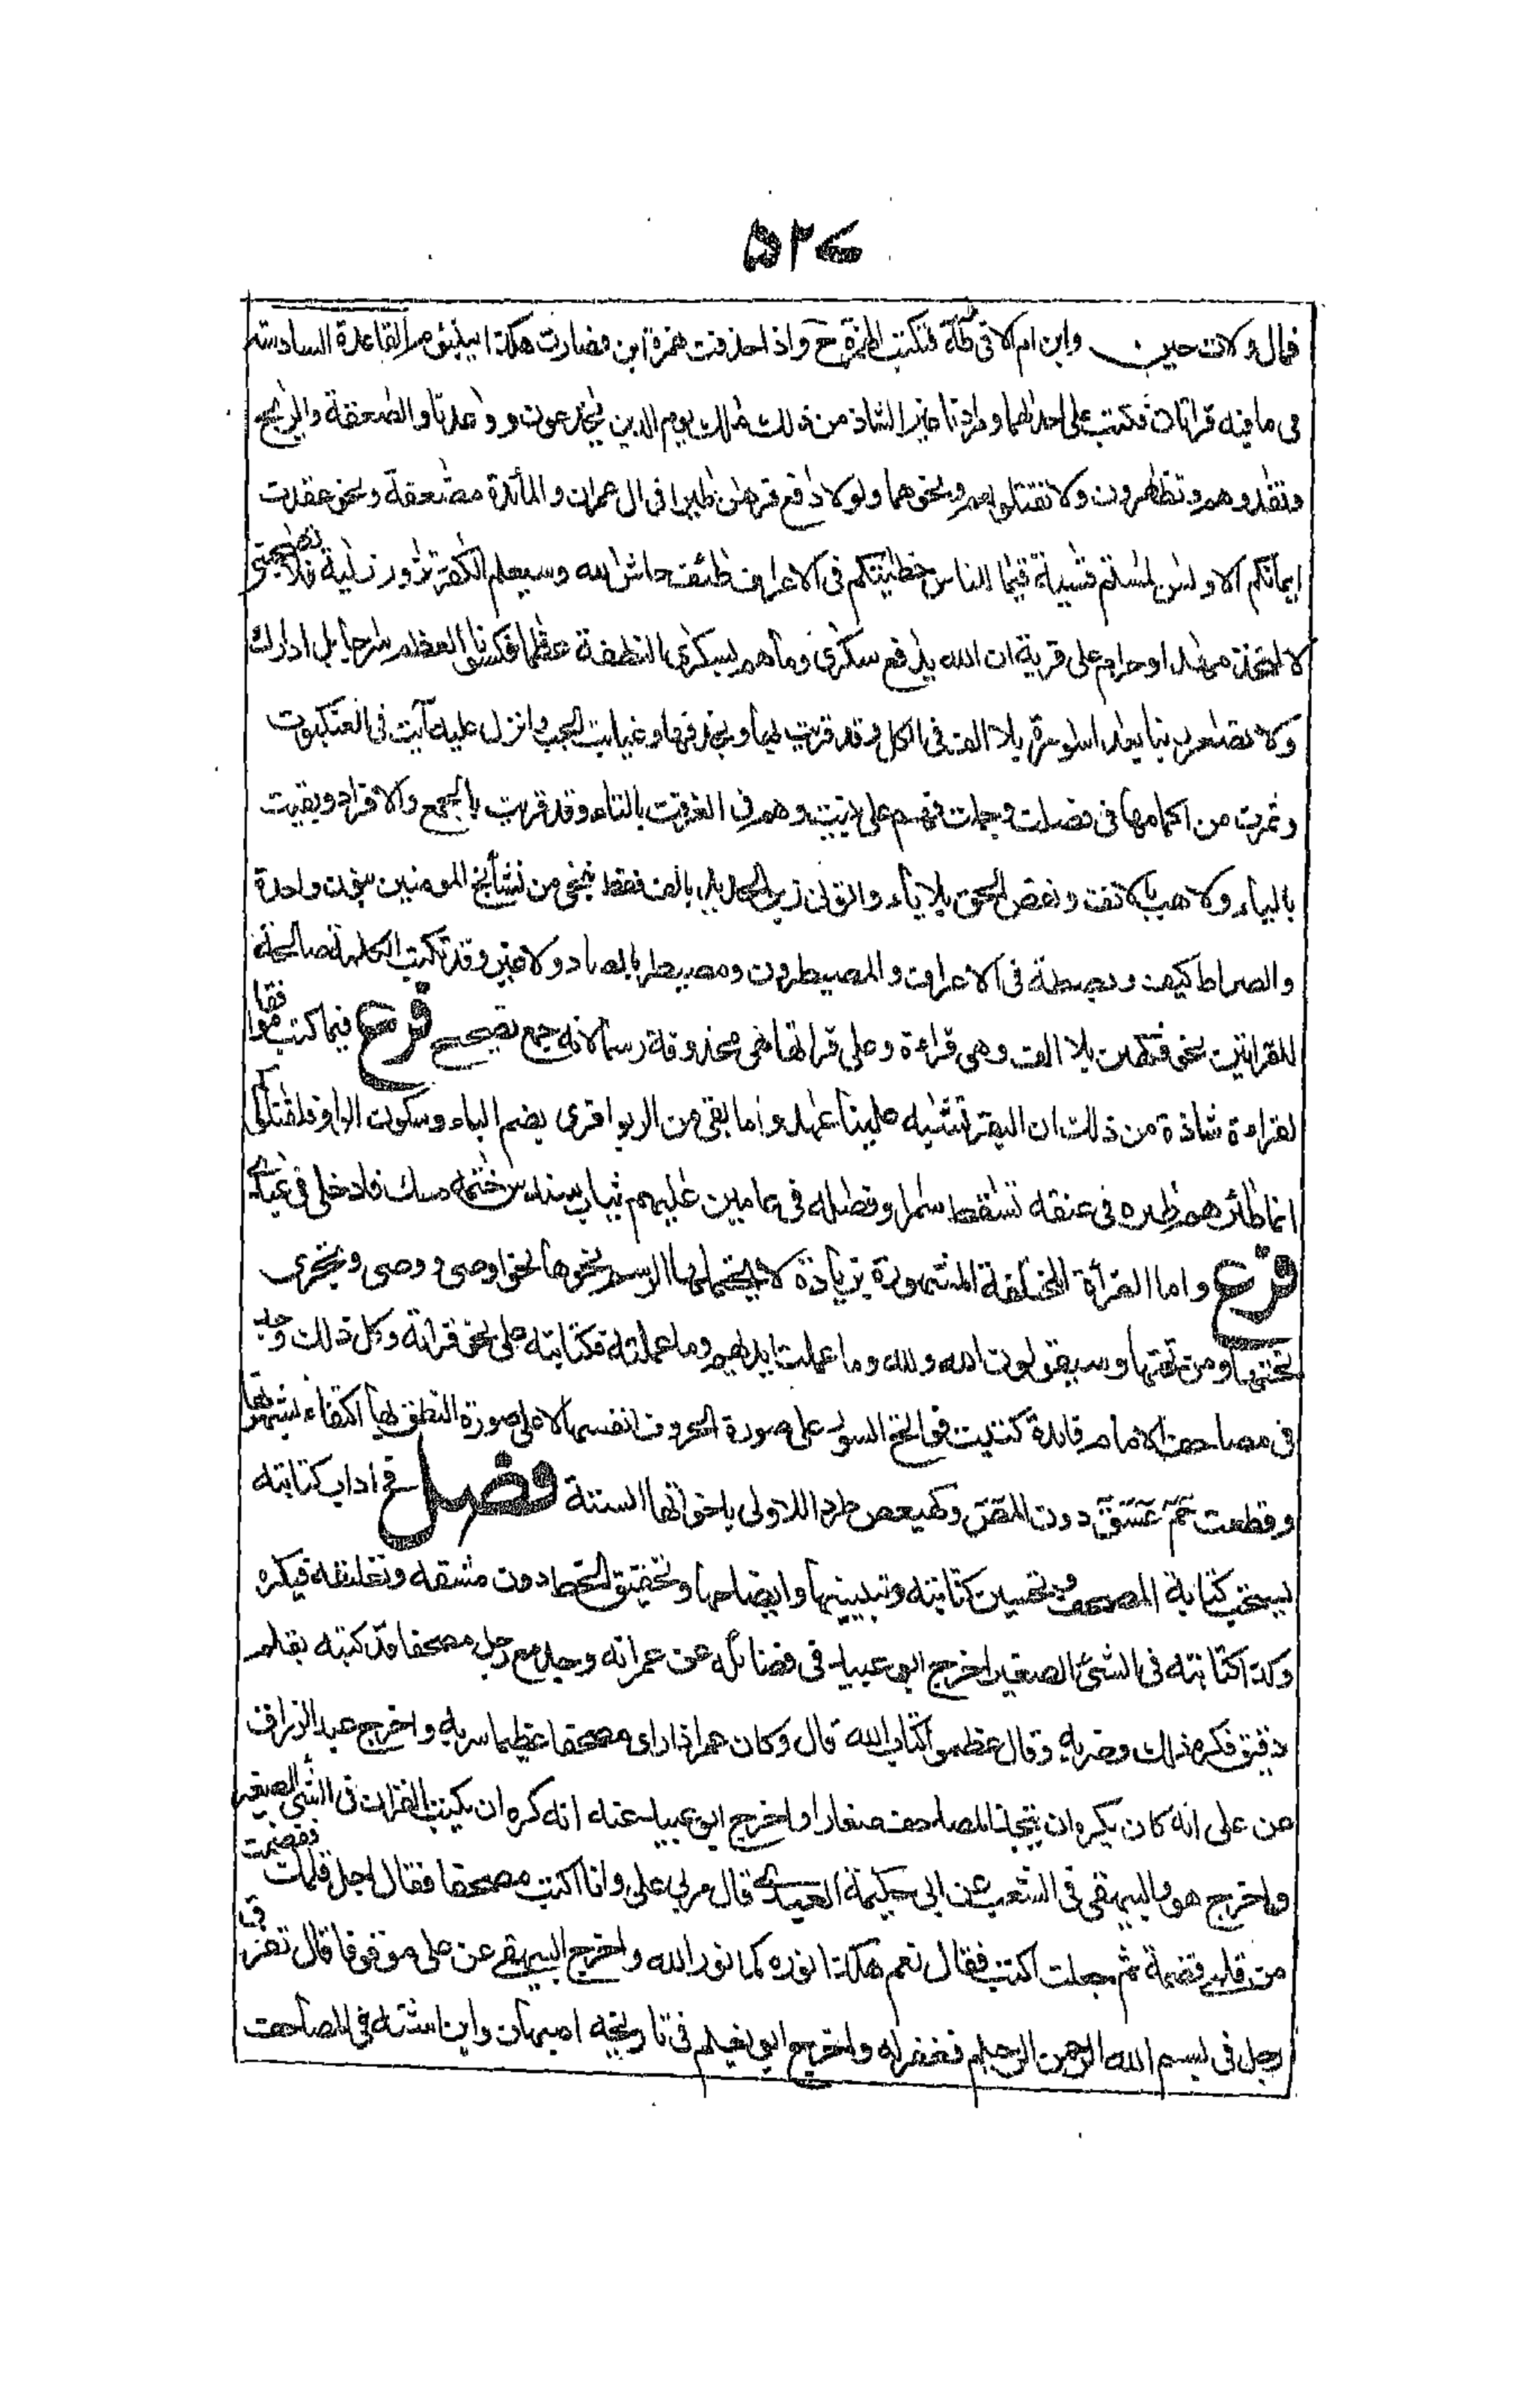 ۵۲۷
فمال ولات حين وابن ام الا فى طه فتكتب الهمزة ح واذا حذفت همزة ابن فصارت هكذا يبنؤم القاعدة السادسة
فى ما فيه قراءتان فكتب على احداهما ومرادنا غير الشاذ من ذلك ملك يوم الدين يخدعون ووعدنا والصعقة والريح
وتفدوهم وتظهرون ولا تقتلوهم ونحوهما ولولا دفع فرهن طيرا فى ال عمران والمائدة مضعفة ونحو عقدت
ايمانكم الاولين لمستم قسية قيما للناس خطيئتكم فى الاعراف طئف حاش لله وسيعلم الكفر تزور زكية فلا تصحبنى
لاتخذت مهدا وحرام على قرية ان الله يدفع سكرى وما هم بسكرى النطفة عظما فكسونا العظم سرجا بل ادارك
ولا تصعر ربنا بعد اسورة بلا الف فى الكل وقد قرئت بها وبحذفها وغيابت الجب وانزل عليه ايت فى العنكبوت
وثمرت من اكمامها فى فصلت وجملت فهم على بينت وهم فى الغرفت بالتاء وقد قرئت بالجمع والافراد وبقيت
بالياء ولاهب بالالف ونقص الحق بلا ياء واتونى زبر الحديد بالف فقط ننجى من نشاء ننج المومنين بنون واحدة
والصراط كيف وبصطة فى الاعراف والمصيطرون ومصيطر بالصاد لا غير وقد تكتب الكلمة صالحة
للقراءتين نحو فكهين بلا الف وهى قراءة وعلى قراءتها هى محذوفة رسما لانه جمع تصحيح فرع فيما كتب موافقا
لقراءة شاذة من ذلك ان البقر تشبه علينا عهدوا ما بقى من الربوا قرى بضم الباء وسكون الواو فلقتلوكم
انما طائرهم طيره فى عنقه تسقط سمرا وفصله فى عامين عليهم ثياب سندس ختمه مسك فادخلى فى عبدى
فرع واما القرأة المختلفة المشهورة بزيادة لا يحتملها الرسم ونحوها نحو اوصى ووصى وتجرى
تحتها ومن تحتها وسيقولون الله ولله وما عملت ايديهم وما عملته فكتابته على نحو قراءته وكل ذلك وجد
فى مصاحف الامام فائدة كتبت فواتح السور على صورة الحروف انفسها لا على صورة النطق بها اكتفاء بشهرتها
وقطعت حم عسق دون المص وكهيعص طردا للاولى باخواتها الستة فصل فى اداب كتابته
يستحب كتابة المصحف وتحسين كتابته وتبيينها وايضاحها وتحقيق الخط دون مشقه وتعليقه فيكره
وكذا كتابته فى الشئ الصغير اخرج ابو عبيد فى فضائله عن عمر انه وجد مع رجل مصحفا قد كتبه بقلم
دقيق فكره ذلك وضربه وقال عظموا كتاب الله قال وكان عمر اذا راى مصحفا عظيما سر به واخرج عبد الرزاق
عن على انه كان يكره ان يتخذ المصاحف صغارا واخرج ابو عبيد عنه انه كره ان يكتب القران فى الشئ الصغير
واخرج هو والبيهقى فى الشعب عن ابى حكيمة العبدى قال مر بى على وانا اكتب مصحفا فقال اجل قلمك فقضمت
من قلمى قضمة ثم جعلت اكتب فقال نعم هكذا نوره كما نور الله واخرج البيهقى عن على موقوفا قال تنوق
رجل فى بسم الله الرحمن الرحيم فغفر له واخرج ابو نعيم فى تاريخه اصبهان وابن اشته فى المصاحف